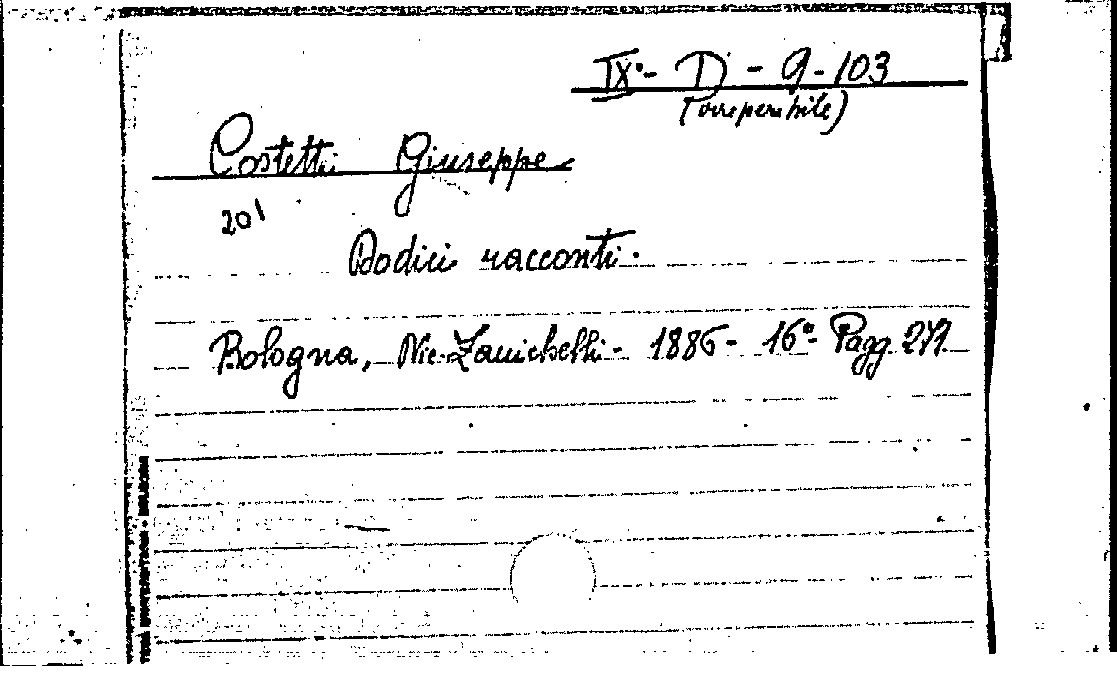 IX°- D - 9-103
(irreperibile)
Costetti Giuseppe
201
Dodici racconti.
Bologna, Nic. Zanichelli - 1886 - 16° Pagg. 271